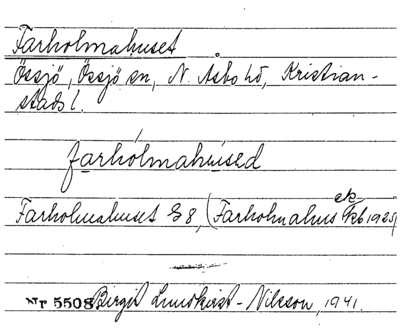 Farholmahuset
Össjö, Össjö sn, N. Åsbo hd, Kristian-
stads l.
farhólmahúsed
Farholmahuset G 8, (Farholmahus ek Kb 1925)
Nr 5508 Birgit Lundkvist-Nilsson, 1941.